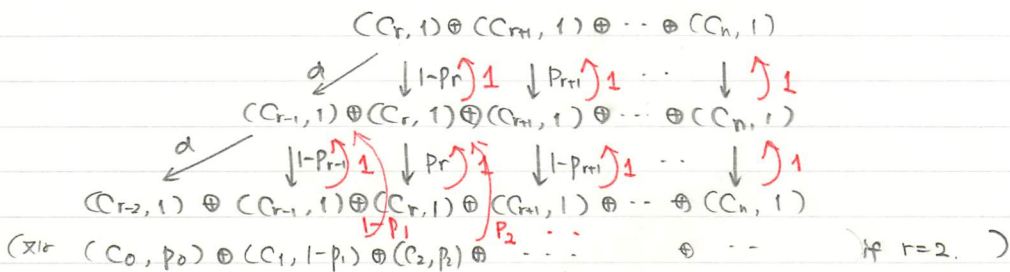 (C_r, 1) ⊕ (C_{r+1}, 1) ⊕ ⋯ ⊕ (C_n, 1)
d ↓1-p_r 1 ↓p_{r+1} 1 ⋯ ↓ 1
(C_{r-1}, 1) ⊕ (C_r, 1) ⊕ (C_{r+1}, 1) ⊕ ⋯ ⊕ (C_n, 1)
d ↓1-p_{r-1} 1 ↓p_r 1 ↓1-p_{r+1} 1 ⋯ ↓ 1
(C_{r-2}, 1) ⊕ (C_{r-1}, 1) ⊕ (C_r, 1) ⊕ (C_{r+1}, 1) ⊕ ⋯ ⊕ (C_n, 1)
1-p_1 p_2 ⋯
( (C_0, p_0) ⊕ (C_1, 1-p_1) ⊕ (C_2, p_2) ⊕ ⋯ ⊕ ⋯ if r=2. )